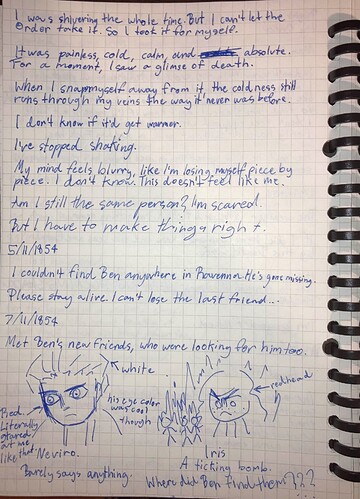 I was shivering the whole time. But I can't let the
Order take it. So I took it for myself.
It was painless, cold, calm, and absolute.
For a moment, I saw a glimse of death.
When I snap myself away from it, the coldness still
runs through my veins the way it never was before.
I don't know if it'd get warmer.
I've stopped shaking.
My mind feels blurry, like I'm losing myself piece by
piece. I don't know. This doesn't feel like me.
Am I still the same person? I'm scared.
But I have to make things right.
5/11/1854
I couldn't find Ben anywhere in Ravenna. He's gone missing.
Please stay alive. I can't lose the last friend...
7/11/1854
Met Ben's new friends, who were looking for him too.
white
redhead
his eye color
was cool
though
Literally
glared
at me
like that
Neviro.
Barely says anything.
Iris
A ticking bomb.
Where did Ben find them???